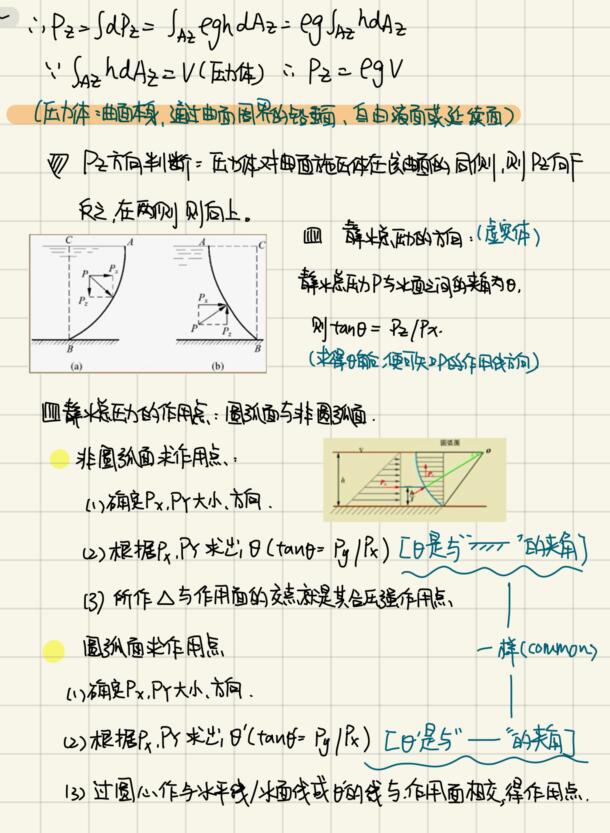 ∴ Pz = ∫dPz = ∫Az ρghdAz = ρg∫Az hdAz
∵ ∫Az hdAz = V(压力体) ∴ Pz = ρgV
(压力体：曲面本身，通过曲面周界的铅垂面、自由液面或延续面)
Pz方向判断：压力体对曲面施压体在该曲面的同侧，则Pz向下
反之，在两侧则向上。
C A A C
P Px Pz Px P Pz
B B
(a) (b)
四 静水总压力的方向：(虚实体)
静水总压力P与水面之间的夹角为θ，
则tanθ = Pz/Px.
(求得θ角后，便可知P的作用线方向)
四 静水总压力的作用点：圆弧面与非圆弧面.
圆弧面
h
非圆弧面求作用点：
(1) 确定Px,Py大小、方向.
(2) 根据Px,Py求出θ(tanθ = Py/Px) [θ是与“ ”的夹角]
(3) 所作△与作用面的交点就是其合压强作用点、
一样(common)
圆弧面求作用点
(1) 确定Px,Py大小、方向.
(2) 根据Px,Py求出θ'(tanθ' = Py/Px) [θ'是与“—”的夹角]
(3) 过圆心作与水平线/水面线成θ的线与作用面相交，得作用点.